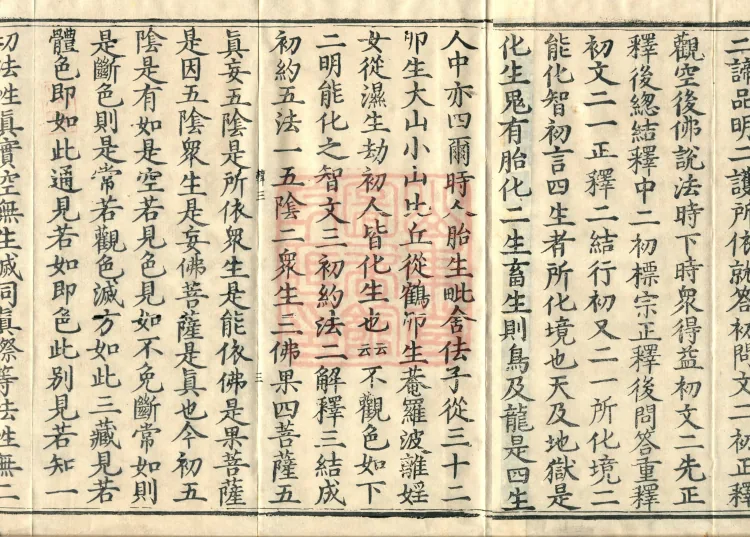 二諦品明二護所依就答初問文二初正釋
觀空後佛說法時下時衆得益初文二先正
釋後緫結釋中二初標宗正釋後問答重釋
初文二一正釋二結行初又二一所化境二
能化智初言四生者所化境也天及地獄是
化生鬼有胎化二生畜生則鳥及龍是四生
人中亦四爾時人胎生毗舍佉子從三十二
卵生大山小山比丘從鶴卵生菴羅波離婬
女從濕生劫初人皆化生也云云不觀色如下
二明能化之智文三初約法二解釋三結成
初約五法一五陰二衆生三佛果四菩薩五
釋三 三
眞妄五陰是所依衆生是能依佛是果菩薩
是因五陰衆生是妄佛菩薩是眞也今初五
陰是有如是空若見色見如不免斷常如則
是斷色則是常若觀色滅方如此三藏見若
體色即如此通見若如即色此別見若知一
切法性眞實空無生滅同眞際等法性無二